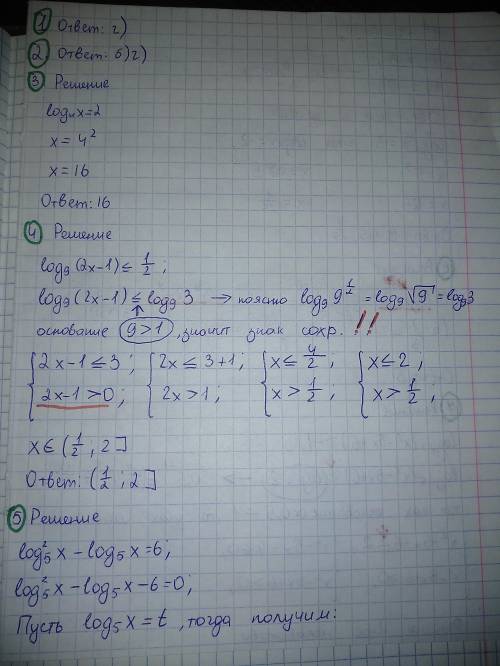 1 Ответ: г)
2 Ответ: б) г)
3 Решение
log₄x=2
x = 4²
x = 16
Ответ: 16
4 Решение
log₉(2x-1) ≤ 1/2 ;
log₉(2x-1) ≤ log₉ 3 → поясню log₉ 9^(1/2) = log₉ √9 = log₉3
основание 9>1, значит знак сохр. !!
{ 2x-1 ≤ 3 ; { 2x ≤ 3+1 ; { x ≤ 4/2 , { x ≤ 2 ,
2x-1 >0 ; 2x > 1 ; x > 1/2 , x > 1/2 ,
x ∈ (1/2 , 2]
Ответ: (1/2 ; 2]
5 Решение
log²₅ x - log₅ x = 6 ;
log²₅ x - log₅ x - 6 = 0 ,
Пусть log₅ x = t , тогда получим: